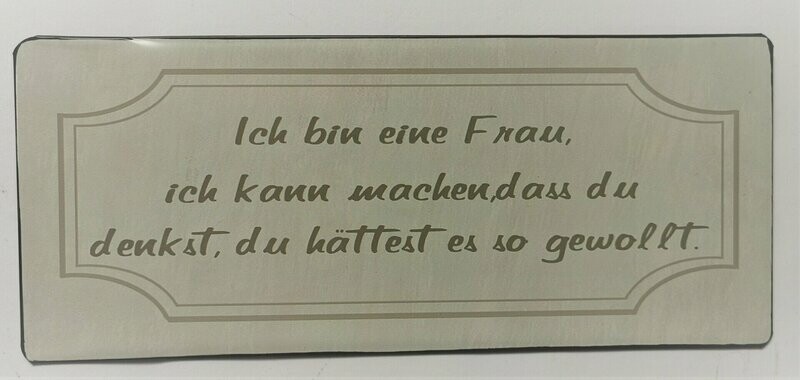 Ich bin eine Frau,
ich kann machen,dass du
denkst, du hättest es so gewollt.